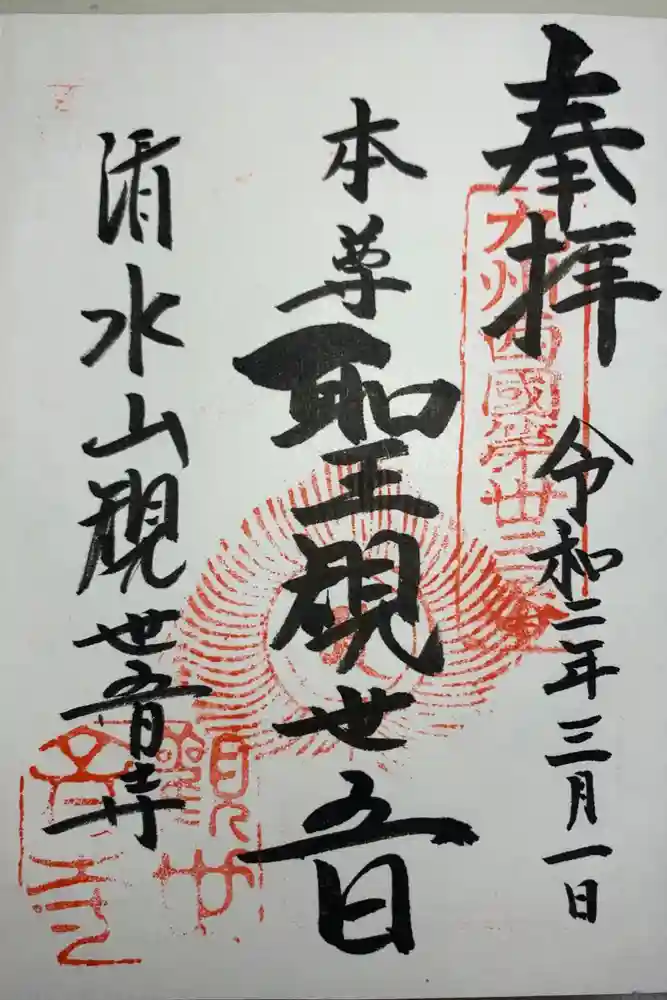 奉拝
九州西國第卅三番
令和二年三月一日
本尊
聖観世音
清水山観世音寺